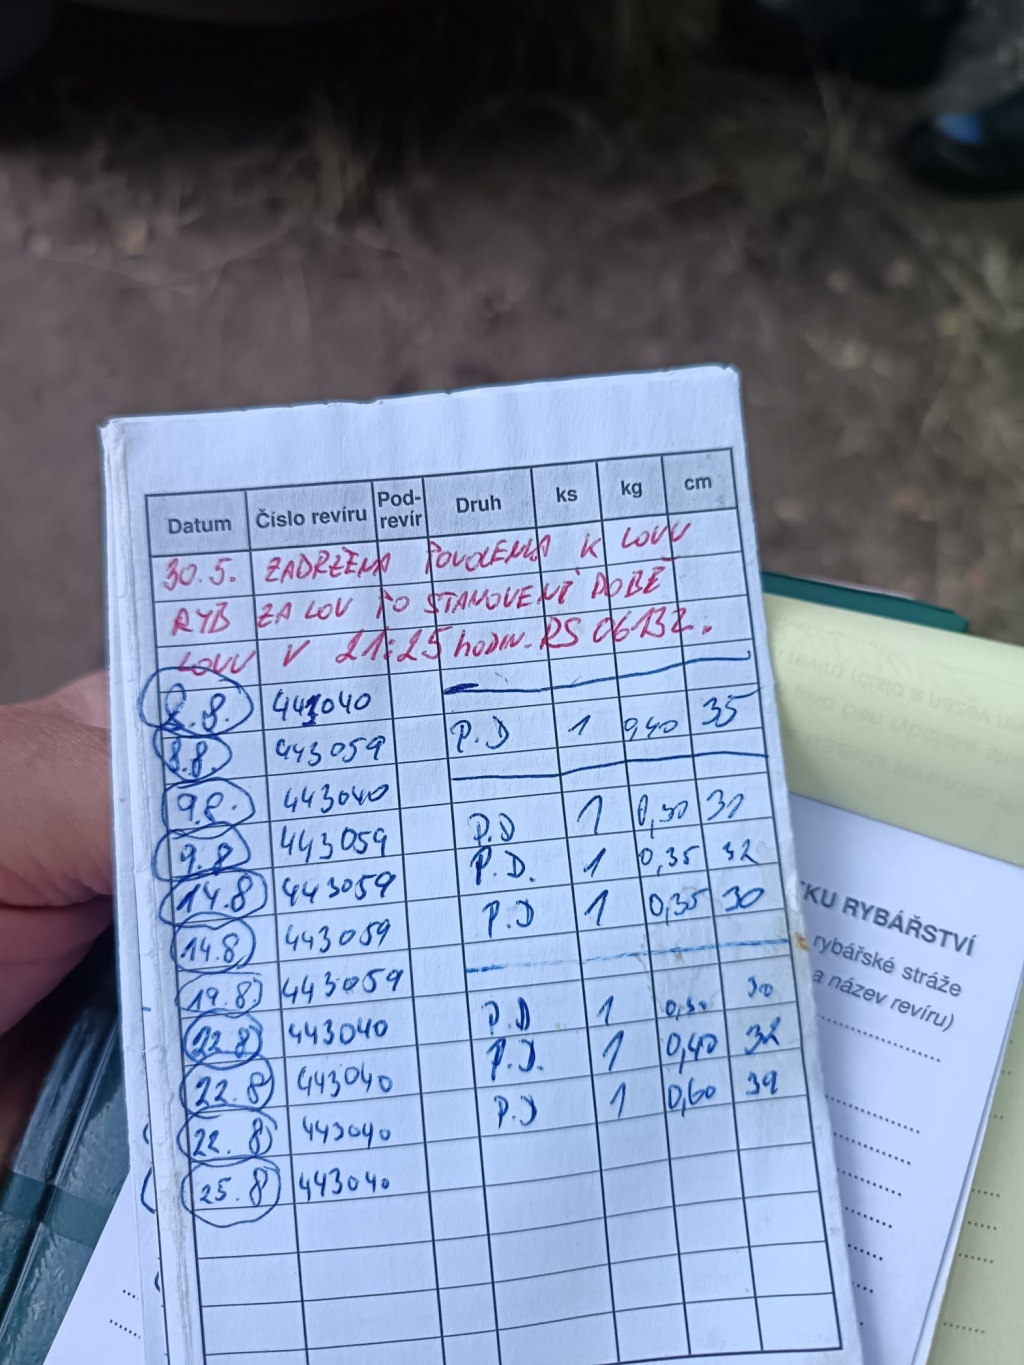 Datum Číslo revíru Pod-revír Druh ks kg cm
30.5. ZADRŽENA POVOLENKA K LOVU
RYB ZA LOV PO STANOVENÉ DOBĚ
LOVU V 21:25 hodin. RS 06132.
8.8. 443040
8.8. 443059 P.D 1 0,40 35
9.8. 443040
9.8 443059 P.D 1 0,30 31
14.8 443059 P.D. 1 0,35 32
14.8 443059 P.D 1 0,35 30
19.8 443059
22.8 443040 P.D 1 0,30 30
22.8 443040 P.D. 1 0,40 32
22.8 443040 P.D 1 0,60 39
25.8 443040
KU RYBÁŘSTVÍ
rybářské stráže
a název revíru)